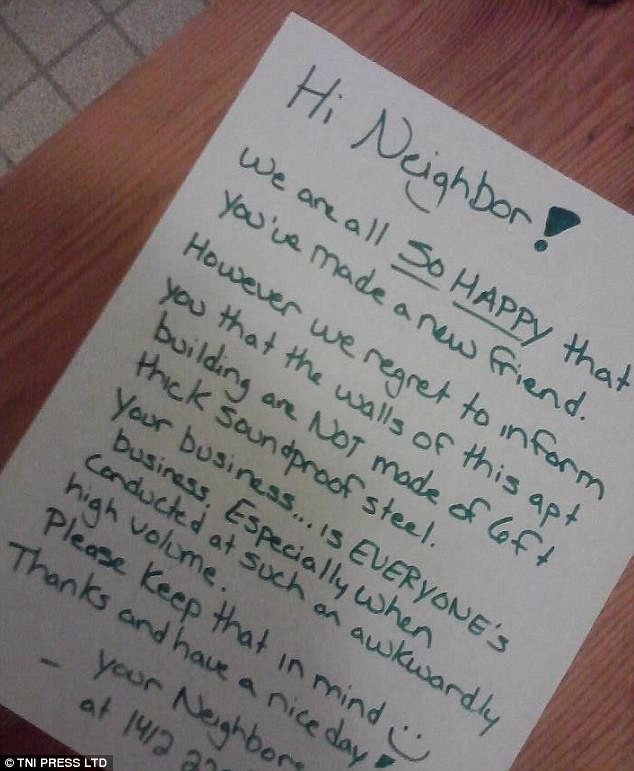 Hi Neighbor!
We are all SO HAPPY that
you've made a new friend.
However we regret to inform
you that the walls of this apt
building are NOT made of 6ft
thick soundproof steel.
Your business... is EVERYONE's
business. Especially when
conducted at such an awkwardly
high volume.
Please keep that in mind :)
Thanks and have a nice day!
- your Neighbors
at 1412
© TNI PRESS LTD